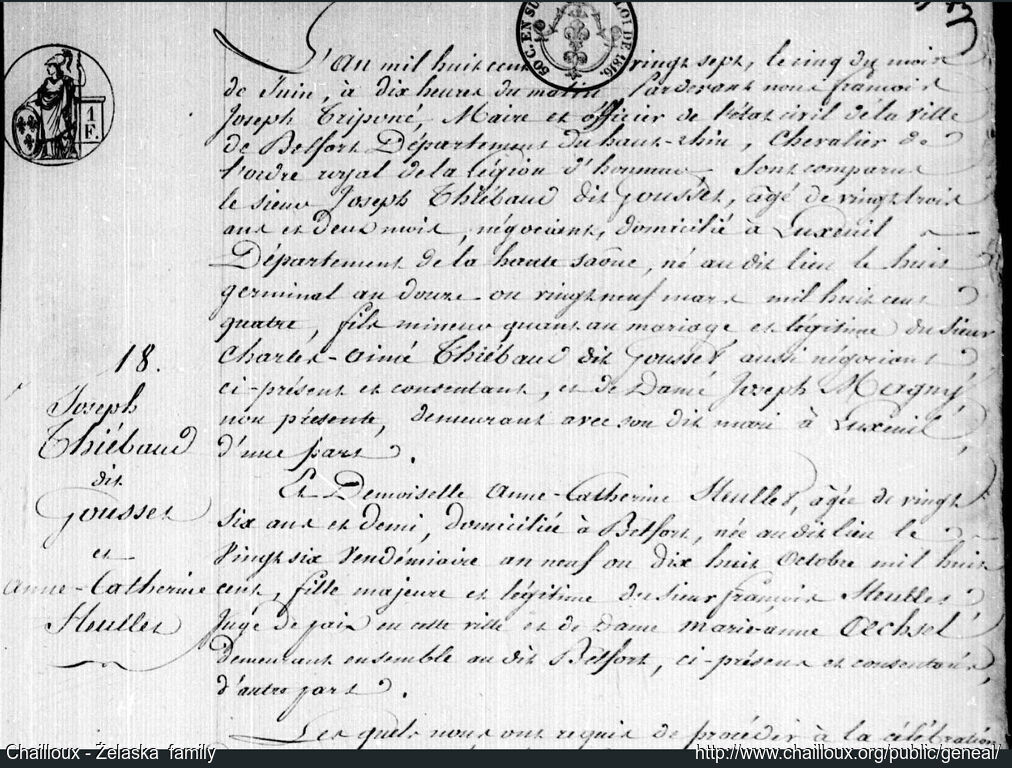 60 C. EN SU
LOI DE 1816.
1
F.
L'An mil huit cent vingt sept, le cinq du mois
de Juin, à dix heures du matin Pardevant nous françois
Joseph Triponé, Maire et officier de l'état civil de la ville
de Belfort Département du haut-rhin, Chevalier de
l'ordre royal de la légion d'honneur, Sont comparus
le sieur Joseph Thiébaud dit Gousset, âgé de vingt trois
ans et deux mois, négociant, domicilié à Luxeuil
Département de la haute saône, né au dit lieu le huit
germinal an douze ou vingt neuf mars mil huit cent
quatre, fils mineur quant au mariage et légitime du Sieur
Charles-aimé Thiébaud dit Gousset aussi négociant
ci-présent et consentant, et de Dame Joseph Mergny
non présente, demeurant avec son dit mari à Luxeuil,
d'une part.
18.
Joseph
Thiébaud
dit
Gousset
et
Anne-Catherine
Heullet
Et Demoiselle Anne-Catherine Heullet, âgée de vingt
six ans et demi, domiciliée à Belfort, née au dit lieu le
Vingt six Vendémiaire an neuf ou dix huit Octobre mil huit
cent, fille majeure et légitime du sieur françois Heullet
Juge de paix en cette ville et de Dame marie-anne Oechsel
Demeurant ensemble au dit Belfort, ci-présens et consentans,
d'autre part.
Les quels nous ont requis de procéder à la célébration
Chailloux - Żelaska family
http://www.chailloux.org/public/geneal/